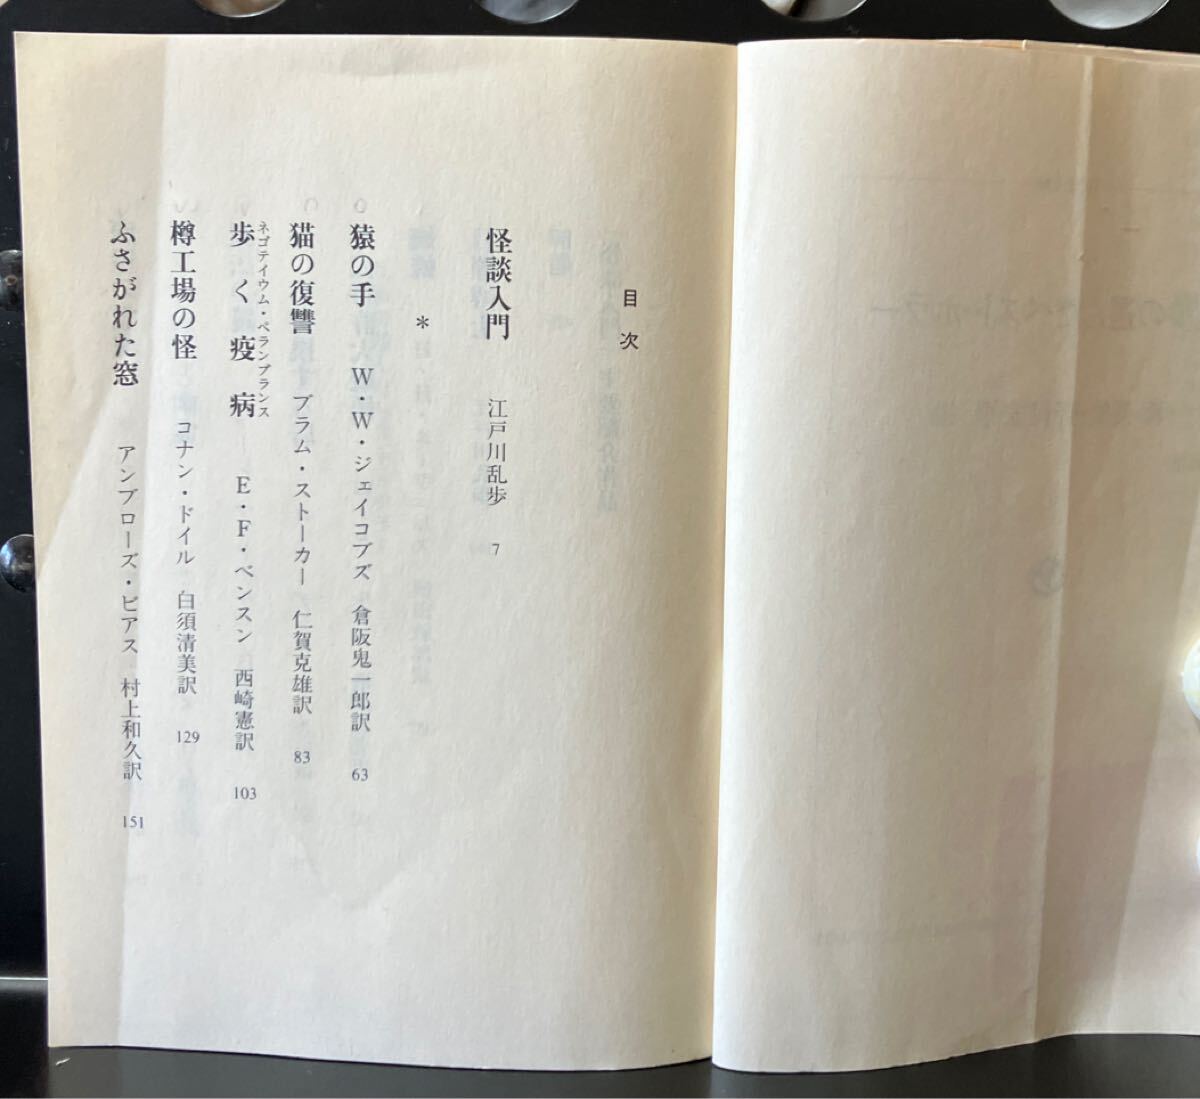 目次
怪談入門 江戸川乱歩 7
*
猿の手 W・W・ジェイコブズ 倉阪鬼一郎訳 63
猫の復讐 ブラム・ストーカー 仁賀克雄訳 83
歩く疫病 E・F・ベンスン 西崎憲訳 103
ネゴテイウム・ペランブランス
樽工場の怪 コナン・ドイル 白須清美訳 129
ふさがれた窓 アンブローズ・ビアス 村上和久訳 151